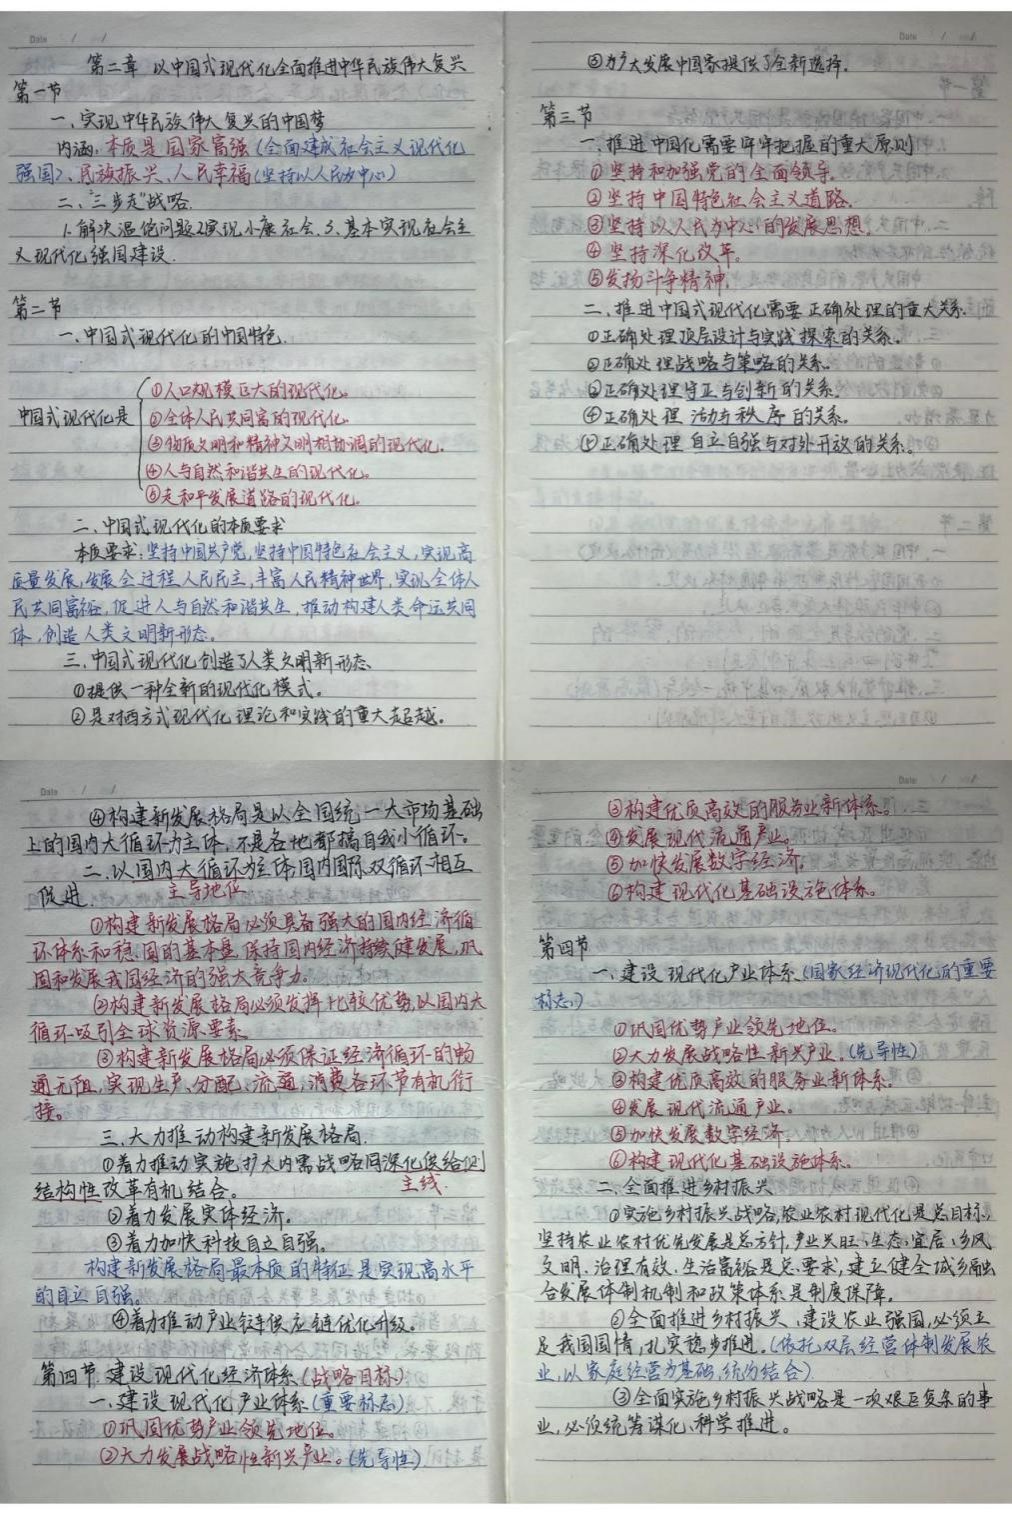 Date / /
第二章 以中国式现代化全面推进中华民族伟大复兴
第一节
一、实现中华民族伟大复兴的中国梦
内涵:本质是国家富强(全面建成社会主义现代化
强国)、民族振兴、人民幸福(坚持以人民为中心)
二、"三步走"战略.
1.解决温饱问题2实现小康社会、3、基本实现社会主
义现代化强国建设.
第二节
一.中国式现代化的中国特色.
中国式现代化是
①人口规模巨大的现代化。
②全体人民共同富的现代化。
③物质文明和精神文明相协调的现代化.
④人与自然和谐共生的现代化。
⑤走和平发展道路的现代化。
二、中国式现代化的本质要求
本质要求:坚持中国共产党,坚持中国特色社会主义,实现高
质量发展,发展全过程人民民主,丰富人民精神世界,实现全体人
民共同富裕,促进人与自然和谐共生,推动构建人类命运共同
体,创造人类文明新形态。
三.中国式现代化创造了人类文明新形态
①提供一种全新的现代化模式。
②是对西方式现代化理论和实践的重大超越.
Date / /
③为扩大发展中国家提供了全新选择.
第三节
一、推进中国化需要牢牢把握的重大原则
①坚持和加强党的全面领导.
②坚持中国特色社会主义道路.
③坚持以人民为中心的发展思想.
④坚持深化改革。
⑤发扬斗争精神.
二、推进中国式现代化需要正确处理的重大关系.
①正确处理顶层设计与实践探索的关系。
②正确处理战略与策略的关系.
③正确处理守正与创新的关系.
④正确处理活动与秩序的关系.
⑤正确处理自立自强与对外开放的关系。
Date / /
④构建新发展格局是以全国统一大市场基础
上的国内大循环为主体,不是各地都搞自我小循环。
二、以国内大循环为主体国内国际双循环相互
促进.
主导地位
①构建新发展格局必须具备强大的国内经济循
环体系和稳固的基本盘,保持国内经济持续健发展,巩
固和发展我国经济的强大竞争力.
②构建新发展格局必须发挥比较优势,以国内大
循环吸引全球资源要素.
③构建新发展格局必须保证经济循环的畅
通无阻,实现生产、分配、流通、消费各环节有机衔
接。
三、大力推动构建新发展格局.
①着力推动实施扩大内需战略同深化供给侧
结构性改革有机结合。 主线.
②着力发展实体经济.
③着力加快科技自立自强。
构建新发展格局最本质的特征是实现高水平
的自立自强。
④着力推动产业链供应链优化升级.
第四节 建设现代化经济体系(战略目标)
一、建设现代化产业体系(重要标志)
①巩固优势产业领先地位.
②大力发展战略性新兴产业。(先导性)
Date / /
③构建优质高效的服务业新体系.
④发展现代流通产业。
⑤加快发展数字经济.
⑥构建现代化基础设施体系。
第四节
一、建设现代化产业体系(国家经济现代化的重要
标志.)
①巩固优势产业领先地位.
②大力发展战略性新兴产业.(先导性)
③构建优质高效的服务业新体系.
④发展现代流通产业。
⑤加快发展数字经济.
⑥构建现代化基础设施体系.
二、全面推进乡村振兴
①实施乡村振兴战略,农业农村现代化是总目标,
坚持农业农村优先发展是总方针,产业兴旺、生态宜居、乡风
文明、治理有效、生活富裕是总要求,建立健全城乡融
合发展体制机制和政策体系是制度保障.
②全面推进乡村振兴、建设农业强国,必须立
足我国国情,扎实稳步推进.(依托双层经营体制发展农
业,以家庭经营为基础,统分结合)
③全面实施乡村振兴战略是一项艰巨复杂的事
业,必须统筹谋化,科学推进。